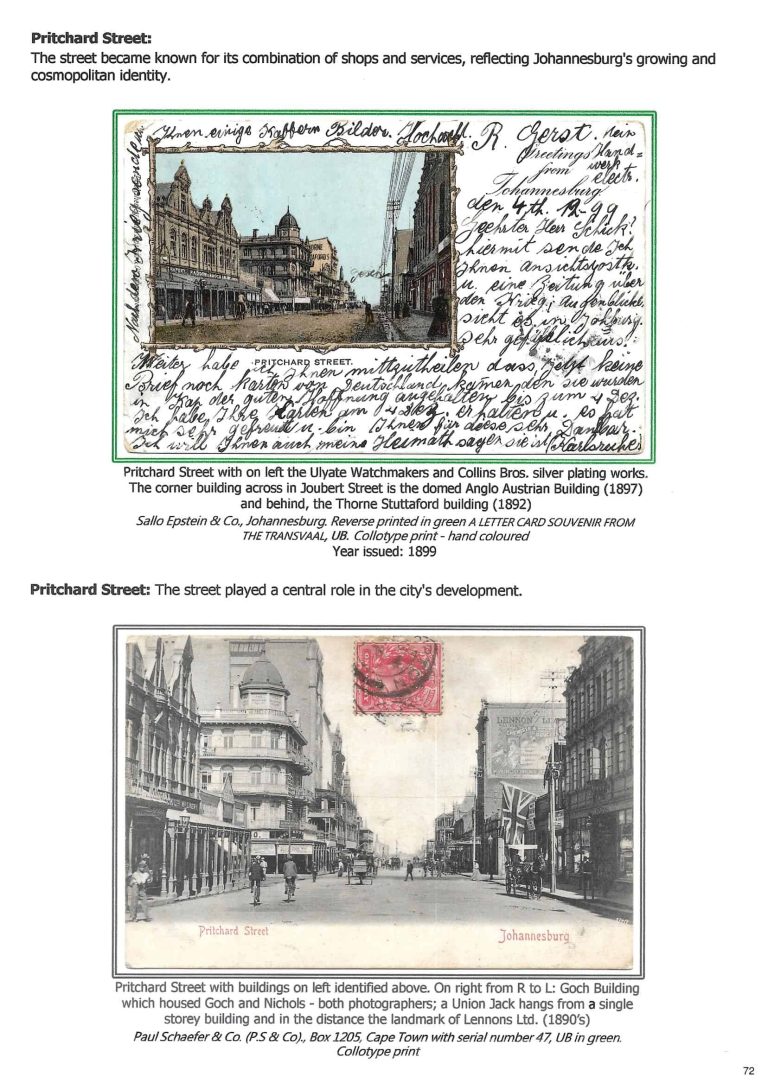 Pritchard Street:
The street became known for its combination of shops and services, reflecting Johannesburg's growing and
cosmopolitan identity.
Ihnen einige Kaffern Bilder. Hochachtl. R. Gerst. dein
Greetings Hand=
from werk
Johannesburg electr.
den 4th. 12-99
Geehrter Herr Schick!
hiermit sende Ich
Ihnen ansichtspostk.
u. eine Zeitung über
den Krieg; Augenblickl.
sieht es in Johburg.
sehr gefährlich aus!
Nach dem Krieg sende
PRITCHARD STREET.
Weiter habe ich Ihnen mittzutheilen dass, jetzt keine
Brief noch karten von Deutschland kamen, den sie wurden
in Kap der guten Hoffnung angehalten bis zum 4 Dez.
Ich habe Ihre Karten am 4 Dez. erhalten u. es hat
mich sehr gefreut u. bin Ihnen für diese sehr Dankbar.
Ich will Ihnen auch meine Heimath sagen sie ist (Karlsruhe)
Pritchard Street with on left the Ulyate Watchmakers and Collins Bros. silver plating works.
The corner building across in Joubert Street is the domed Anglo Austrian Building (1897)
and behind, the Thorne Stuttaford building (1892)
Sallo Epstein & Co., Johannesburg. Reverse printed in green A LETTER CARD SOUVENIR FROM
THE TRANSVAAL, UB. Collotype print - hand coloured
Year issued: 1899
Pritchard Street: The street played a central role in the city's development.
LENNON
Pritchard Street
Johannesburg
Pritchard Street with buildings on left identified above. On right from R to L: Goch Building
which housed Goch and Nichols - both photographers; a Union Jack hangs from a single
storey building and in the distance the landmark of Lennons Ltd. (1890's)
Paul Schaefer & Co. (P.S & Co)., Box 1205, Cape Town with serial number 47, UB in green.
Collotype print
72